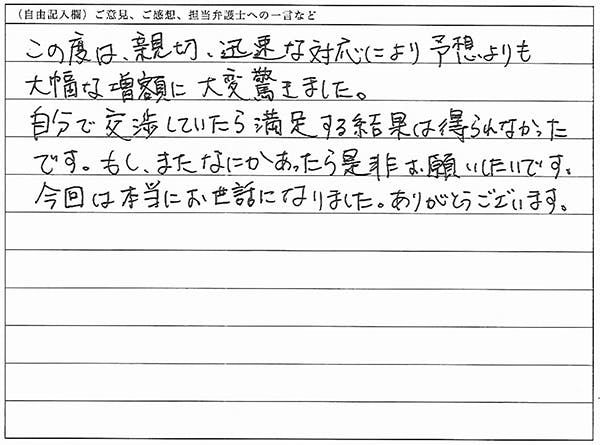 （自由記入欄）ご意見、ご感想、担当弁護士への一言など
この度は、親切、迅速な対応により予想よりも
大幅な増額に大変驚きました。
自分で交渉していたら満足する結果は得られなかった
です。もし、またなにかあったら是非お願いしたいです。
今回は本当にお世話になりました。ありがとうございます。